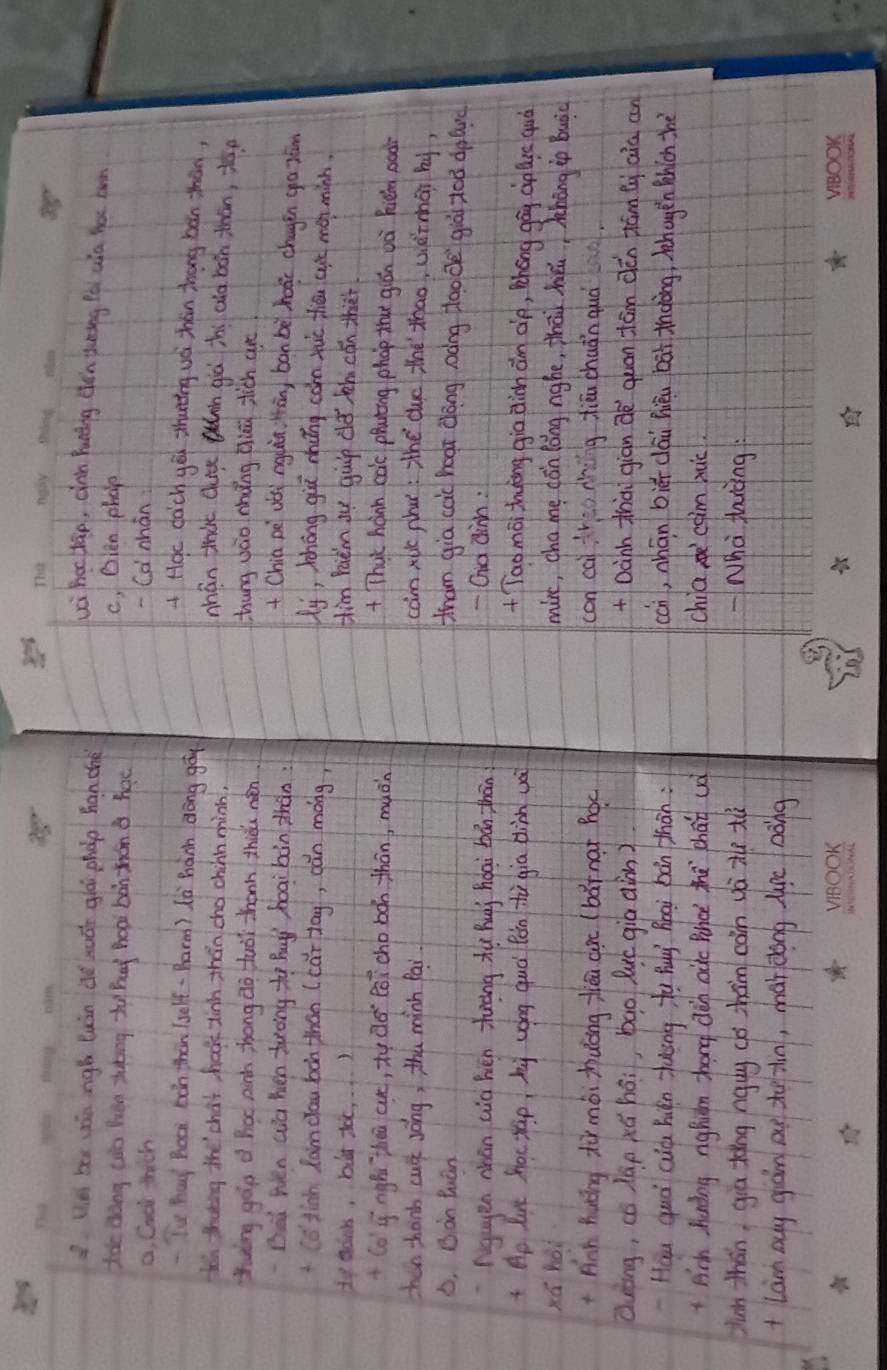 Thứ ngày tháng năm
2. Viết bài văn nghị luận đề xuất giải pháp hạn chế
tác động của hiện tượng tự huỷ hoại bản thân ở học
a, Giải thích
- Tự huỷ hoại bản thân (self-harm) là hành động gây
tổn thương thể chất hoặc tinh thần cho chính mình,
thường gặp ở học sinh trong độ tuổi thanh thiếu niên.
- Biểu hiện của hiện tượng tự huỷ hoại bản thân:
+ Cố tình làm đau bản thân (cắt tay, cắn móng,
tự đánh, bứt tóc,...)
+ Có ý nghĩ tiêu cực, tự đổ lỗi cho bản thân, muốn
trốn tránh cuộc sống, thu mình lại.
b, Bàn luận
- Nguyên nhân của hiện tượng tự huỷ hoại bản thân:
+ Áp lực học tập, kỳ vọng quá lớn từ gia đình và
xã hội
+ Ảnh hưởng từ môi trường tiêu cực (bắt nạt học
đường, cô lập xã hội, bạo lực gia đình).
- Hậu quả của hiện tượng tự huỷ hoại bản thân:
+ Ảnh hưởng nghiêm trọng đến sức khoẻ thể chất và
tinh thần, gia tăng nguy cơ trầm cảm và tự tử
+ Làm suy giảm sự tự tin, mất động lực sống
VIBOOK
INTERNATIONAL
Thứ ngày tháng năm
và học tập, ảnh hưởng đến tương lai của học sinh.
c, Biện pháp
- Cá nhân:
+ Học cách yêu thương và trân trọng bản thân,
nhận thức được giá trị của bản thân, tập
trung vào những điều tích cực.
+ Chia sẻ với người thân, bạn bè hoặc chuyên gia tâm
lý, không giữ những cảm xúc tiêu cực một mình,
tìm kiếm sự giúp đỡ khi cần thiết.
+ Thực hành các phương pháp thư giãn và kiểm soát
cảm xúc như: thể dục thể thao, viết nhật ký,
tham gia các hoạt động sáng tạo để giải toả áp lực
- Gia đình:
+ Tạo môi trường gia đình ấm áp, không gây áp lực quá
mức, cha mẹ cần lắng nghe, thấu hiểu, không ép buộc
con cái theo những tiêu chuẩn quá cao.
+ Dành thời gian để quan tâm đến tâm lý của con
cái, nhận biết dấu hiệu bất thường, khuyến khích trẻ
chia sẻ cảm xúc.
- Nhà trường:
VIBOOK
INTERNATIONAL